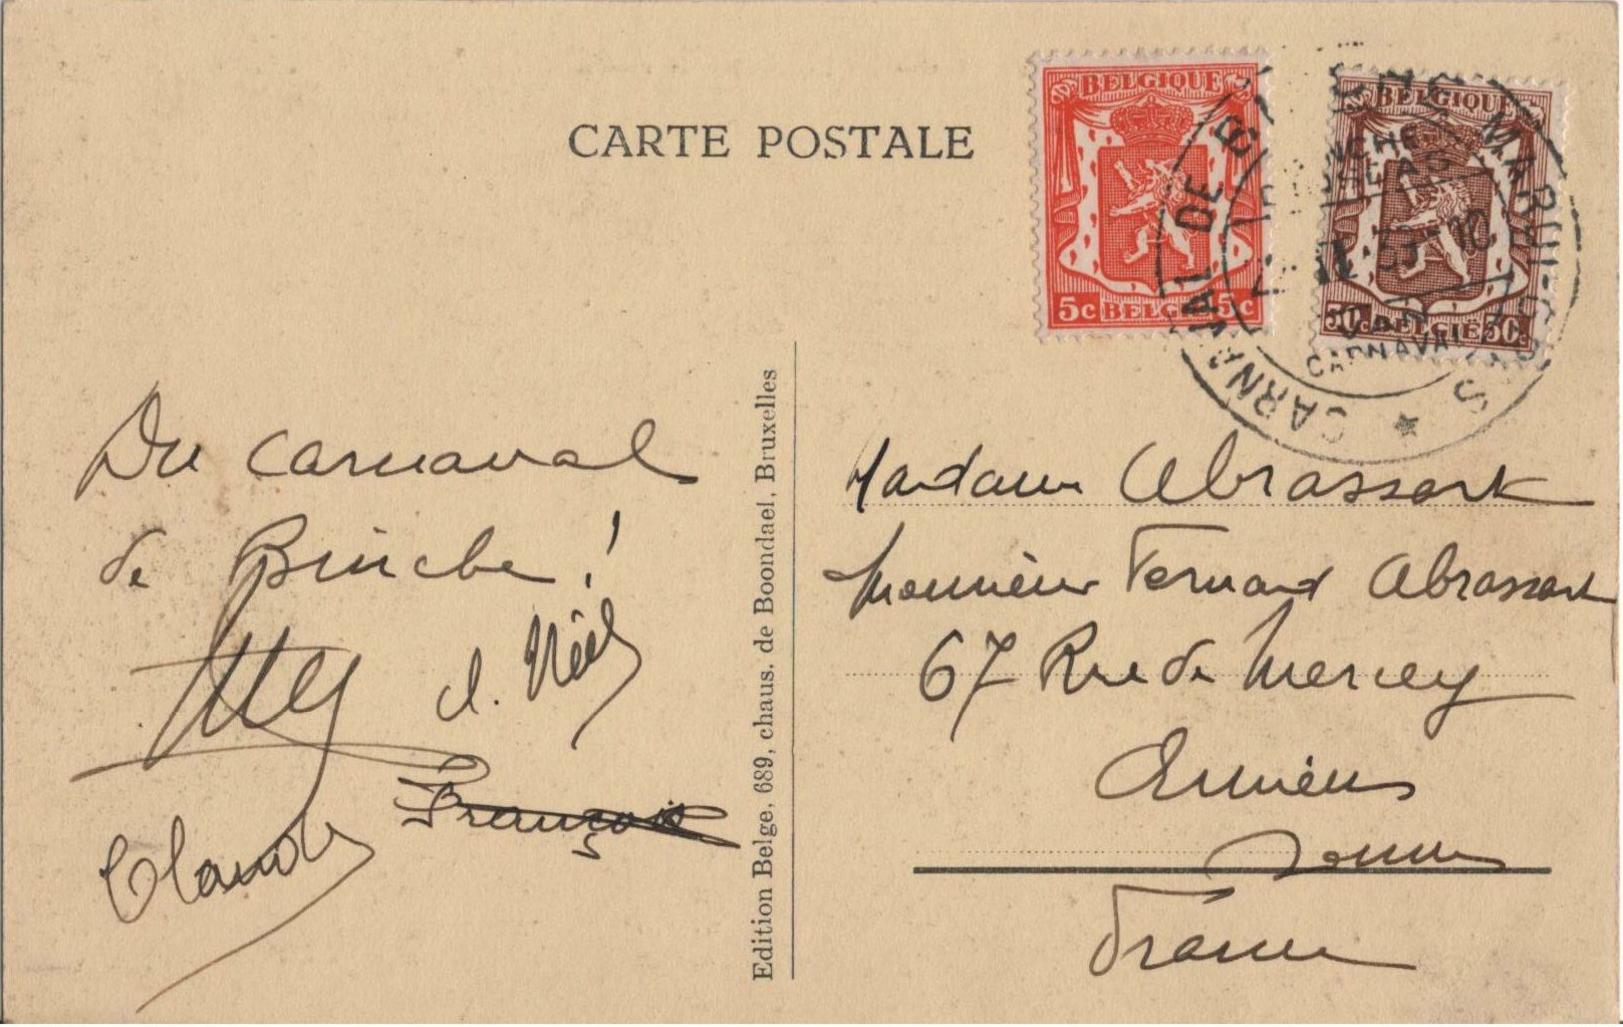 CARTE POSTALE
BELGIQUE
5c BELGIË 5c
BELGIQUE
50c BELGIË 50c
CARNAVAL DE BINCHE MARDI-GRAS
CARNAVAL
Du Carnaval
de Binche !
d. Nëel
François
Claude
Edition Belge, 689, chaus. de Boondael, Bruxelles
Madame Abrassart
Monsieur Fernand Abrassart
67 Rue de Mercey
Amiens
Somme
France